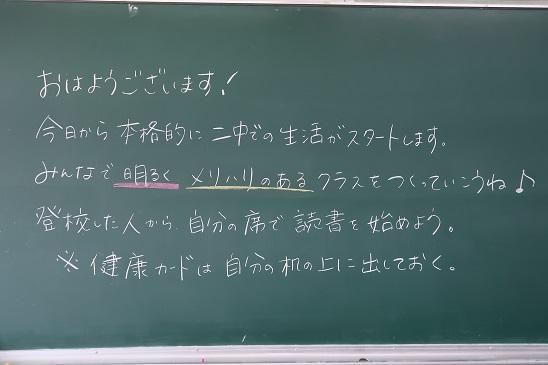 おはようございます！
今日から本格的に二中での生活がスタートします。
みんなで明るくメリハリのあるクラスをつくっていこうね♪
登校した人から、自分の席で読書を始めよう。
※健康カードは自分の机の上に出しておく。